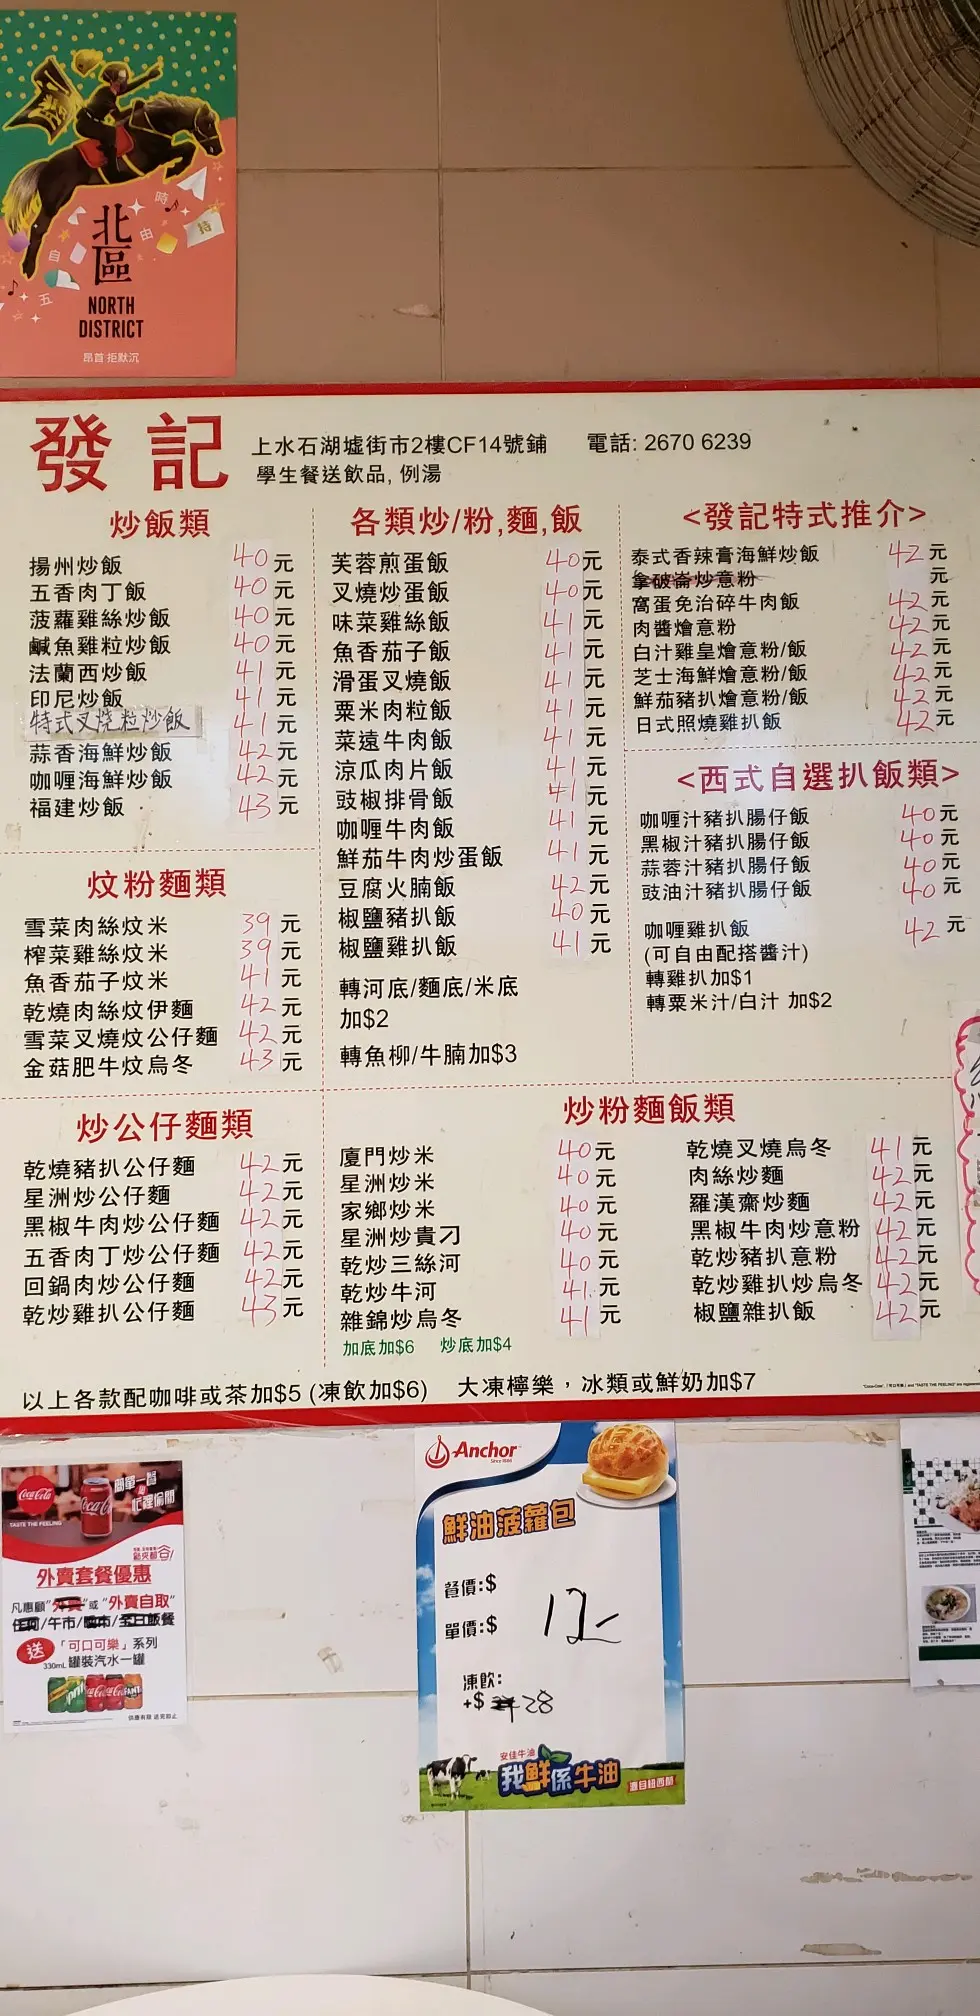 北區
NORTH
DISTRICT
昂首 拒默沉
自由
時
持
五
發記
上水石湖墟街市2樓CF14號鋪 電話: 2670 6239
學生餐送飲品, 例湯
炒飯類
揚州炒飯 40元
五香肉丁飯 40元
菠蘿雞絲炒飯 40元
鹹魚雞粒炒飯 40元
法蘭西炒飯 41元
印尼炒飯 41元
特式叉燒粒炒飯 41元
蒜香海鮮炒飯 42元
咖喱海鮮炒飯 42元
福建炒飯 43元
炆粉麵類
雪菜肉絲炆米 39元
榨菜雞絲炆米 39元
魚香茄子炆米 41元
乾燒肉絲炆伊麵 42元
雪菜叉燒炆公仔麵 42元
金菇肥牛炆烏冬 43元
各類炒/粉,麵,飯
芙蓉煎蛋飯 40元
叉燒炒蛋飯 40元
味菜雞絲飯 41元
魚香茄子飯 41元
滑蛋叉燒飯 41元
粟米肉粒飯 41元
菜遠牛肉飯 41元
涼瓜肉片飯 41元
豉椒排骨飯 41元
咖喱牛肉飯 41元
鮮茄牛肉炒蛋飯 41元
豆腐火腩飯 42元
椒鹽豬扒飯 40元
椒鹽雞扒飯 41元
轉河底/麵底/米底
加$2
轉魚柳/牛腩加$3
<發記特式推介>
泰式香辣膏海鮮炒飯 42元
拿破崙炒意粉 元
窩蛋免治碎牛肉飯 42元
肉醬燴意粉 42元
白汁雞皇燴意粉/飯 42元
芝士海鮮燴意粉/飯 42元
鮮茄豬扒燴意粉/飯 42元
日式照燒雞扒飯 42元
<西式自選扒飯類>
咖喱汁豬扒腸仔飯 40元
黑椒汁豬扒腸仔飯 40元
蒜蓉汁豬扒腸仔飯 40元
豉油汁豬扒腸仔飯 40元
咖喱雞扒飯 42元
(可自由配搭醬汁)
轉雞扒加$1
轉粟米汁/白汁 加$2
炒公仔麵類
乾燒豬扒公仔麵 42元
星洲炒公仔麵 42元
黑椒牛肉炒公仔麵 42元
五香肉丁炒公仔麵 42元
回鍋肉炒公仔麵 42元
乾炒雞扒公仔麵 43元
炒粉麵飯類
廈門炒米 40元
星洲炒米 40元
家鄉炒米 40元
星洲炒貴刁 40元
乾炒三絲河 40元
乾炒牛河 41元
雜錦炒烏冬 41元
加底加$6 炒底加$4
乾燒叉燒烏冬 41元
肉絲炒麵 42元
羅漢齋炒麵 42元
黑椒牛肉炒意粉 42元
乾炒豬扒意粉 42元
乾炒雞扒炒烏冬 42元
椒鹽雜扒飯 42元
以上各款配咖啡或茶加$5 (凍飲加$6) 大凍檸樂，冰類或鮮奶加$7
Coca-Cola
TASTE THE FEELING
外賣套餐優惠
凡惠顧"外賣"或"外賣自取"
任何/午市/晚市/全日飯餐
送
「可口可樂」系列
330mL 罐裝汽水一罐
供應有限 送完即止
Anchor
Since 1886
鮮油菠蘿包
餐價:$
單價:$ 12-
凍飲:
+$ 28
安佳牛油
我鮮係牛油
源自紐西蘭